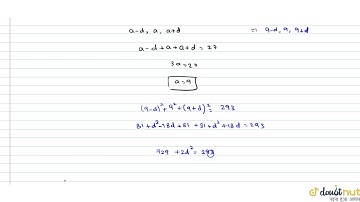 a-d, a, a+d ⇒ a-d, a, a+d
a-d+a+a+d = 27
3a = 27
a = 9
(9-d)² + 9² + (9+d)² = 293
81+d²-18d+81 +81+d²+18d = 293
+2d² = 293
doubtnut